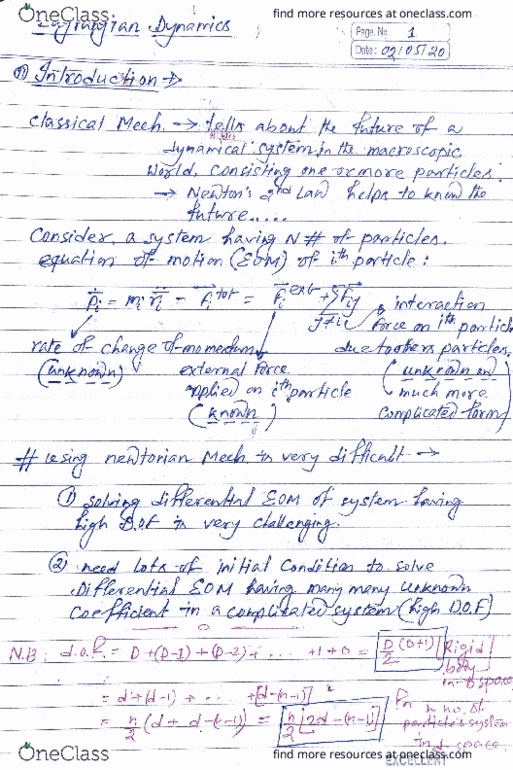 OneClass
find more resources at oneclass.com
Lagrangian Dynamics
Page. No. 1
Date: 02/05/20
① Introduction →
Classical Mech. → tells about the future of a
dynamical system, in the macroscopic
world, consisting one or more particles.
→ Newton's 2nd Law helps to know the
future.....
Consider, a system having N # of particles.
equation of motion (EOM) of ith particle:
ṗi = mi r̈i = Fi^tot = Fi^ext + Σ Fij
j≠i
interaction
force on ith particle
due to others particles.
rate of change of momentum
(unknown)
external force
applied on ith particle
(known)
(unknown and
much more
complicated form)
# Using newtonian Mech. is very difficult →
① solving differential EOM of system having
high D.O.F is very challenging.
② need lots of initial condition to solve
Differential EOM having many many unknown
coefficient in a complicated system (high D.O.F)
N.B: d.o.f. = D+(D-1)+(D-2)+ ... +1+0 = D/2 (D+1) [Rigid
body
in D space]
= d+(d-1)+ ... +[d-(n-1)]
= n/2 (d+d-(n-1)) = n/2 [2d-(n-1)]
n no. of
particle's system
in d space.
EXCELLENT
OneClass
find more resources at oneclass.com